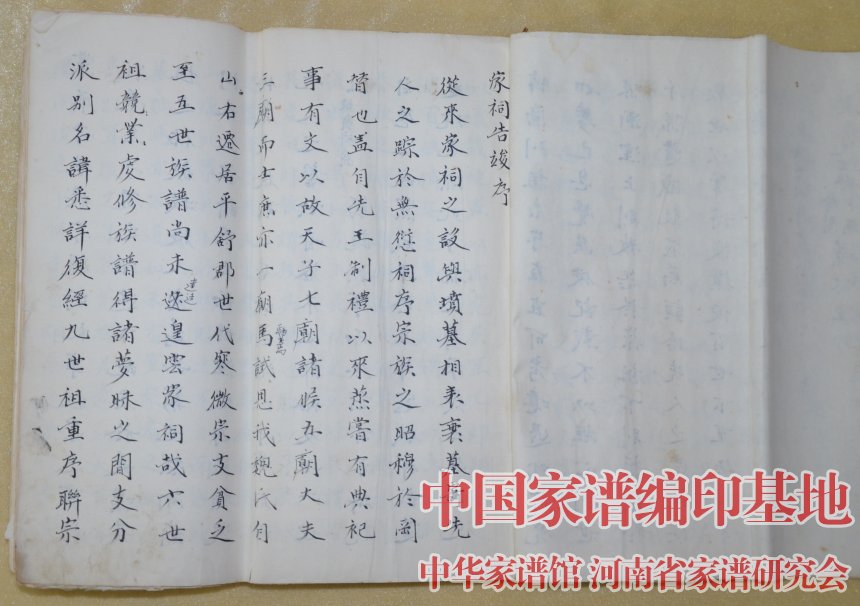 家祠告竣序
從來家祠之設與墳墓相表裏墓先
人之踪於無愆祠序宗族之昭穆於罔
替也盖自先王制禮以來蒸嘗有典祀
事有文以故天子七廟諸候五廟大夫
三廟而士庶亦一廟焉試思我魏氏自
山右遷居平舒郡世代寒微宗支貧乏
至五世族譜尚未遑雲家祠哉六世
祖競業虔修族譜得諸夢昧之間支分
派别名諱悉詳復經九世祖重序聯宗
中国家谱编印基地
中华家谱馆 河南省家谱研究会